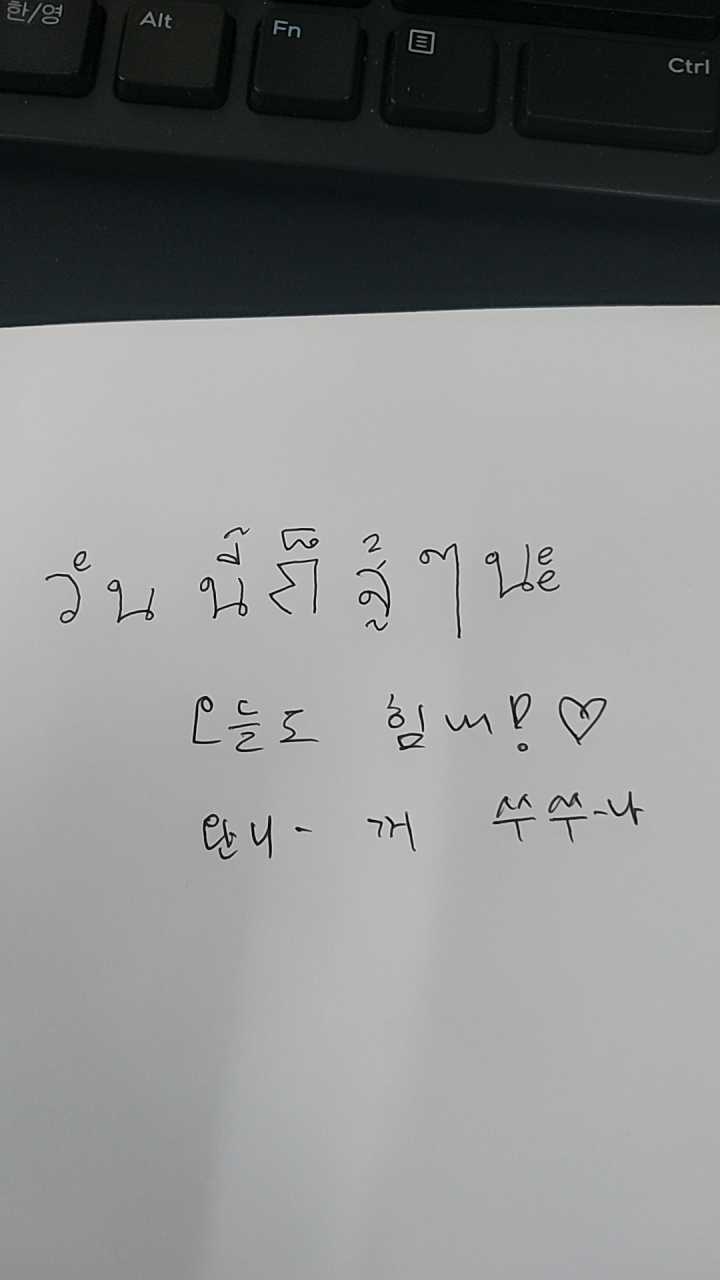 한/영 Alt Fn Ctrl
วันนี้ก็สู้ๆนะ
오늘도 힘내!♡
완니- 거 쑤쑤-나